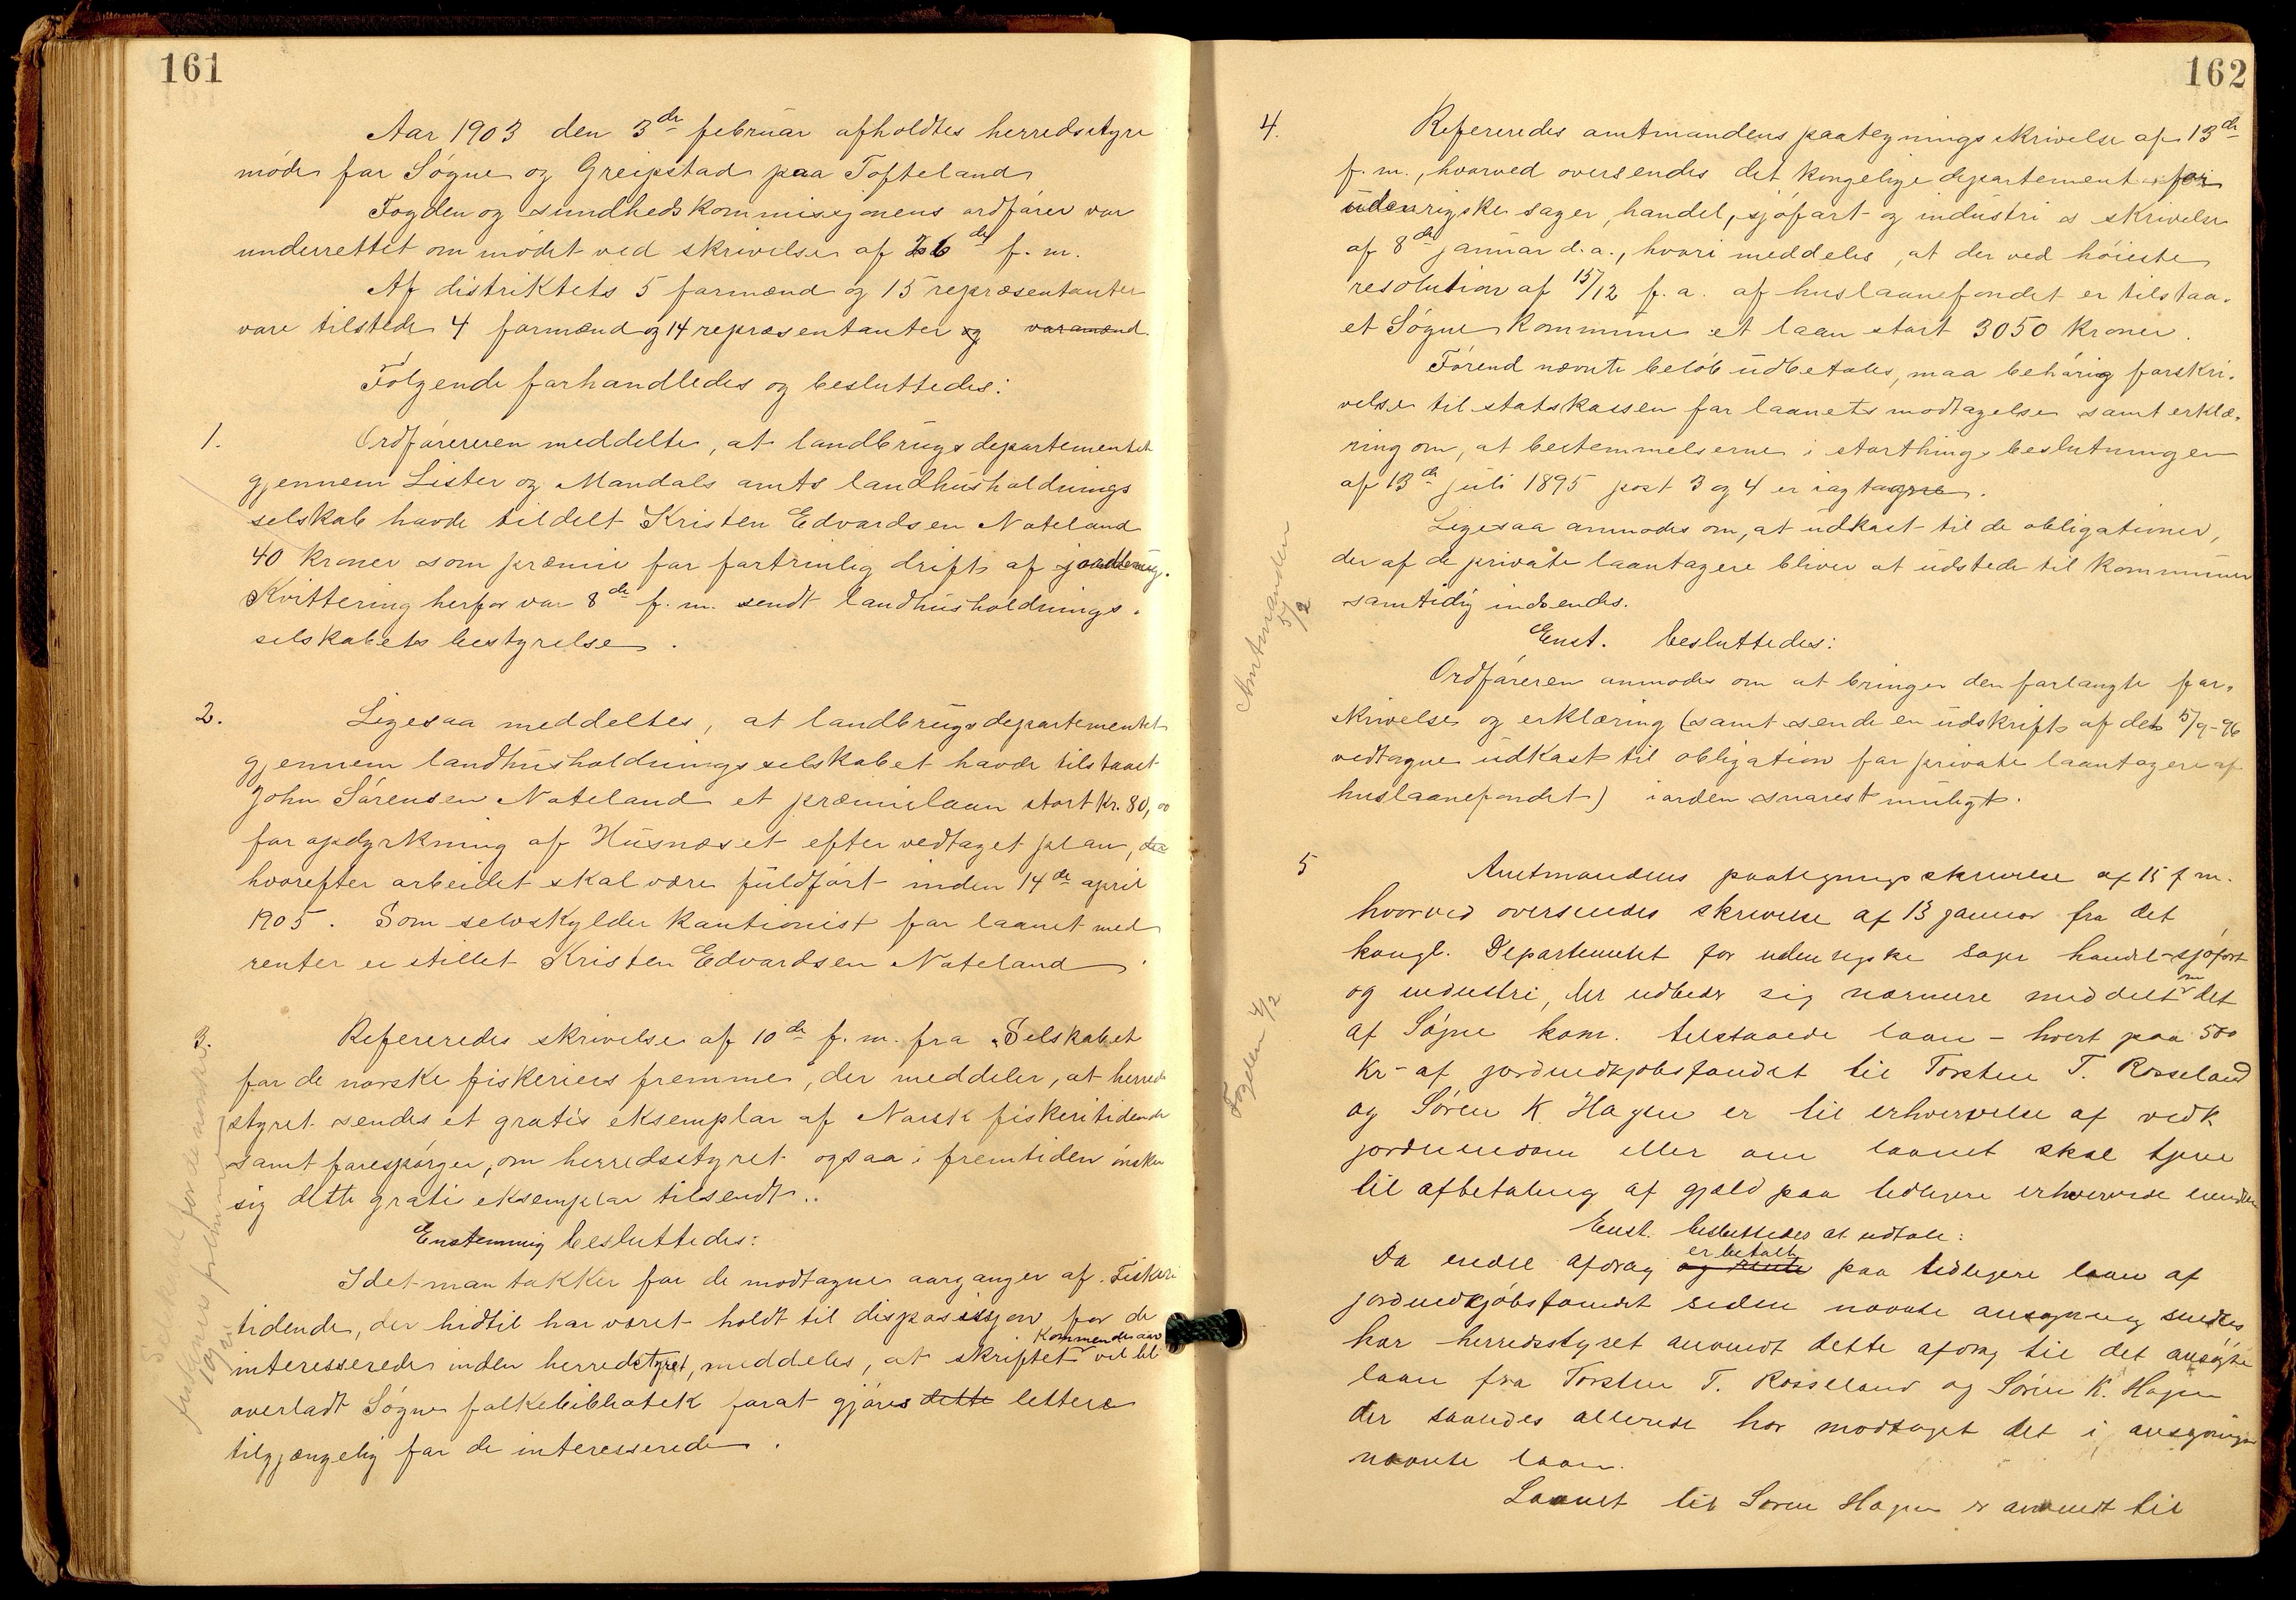 161
Aar 1903 den 3de februar afholdtes herredsstyre
møde for Søgne og Greipstad paa Tofteland
Fogden og sundhedskommissjonens ordfører var
underrettet om mødet ved skrivelse af 26de f. m.
Af distriktets 5 formænd og 15 repræsentanter
vare tilstede 4 formænd og 14 repræsentanter og varamænd
Følgende forhandledes og besluttedes:
1. Ordføreren meddelte, at landbrugsdepartementet
gjennem Lister og Mandals amts landhusholdnings
selskab havde tildelt Kristen Edvardsen Nateland
40 kroner som præmie for fortrinlig drift af jordbrug.
Kvittering herfor var 8de f. m. sendt landhusholdnings-
selskabets bestyrelse.
2. Ligesaa meddeltes, at landbrugsdepartementet
gjennem landhusholdningsselskabet havde tilstaaet
John Sørensen Nateland et præmielaan stort kr. 80,00
for opdyrkning af Husnæset efter vedtaget plan,
hvorefter arbeidet skal være fuldført inden 14de april
1905. Som selvskylder kautionist for laanet med
renter er stillet Kristen Edvardsen Nateland.
3. Refereredes skrivelse af 10de f. m. fra "Selskabet
for de norske fiskeriers fremme, der meddeler, at herreds
styret sendes et gratis eksemplar af Norsk fiskeritidende
samt forespørger, om herredsstyret ogsaa i fremtiden ønsker
sig dette gratis eksemplar tilsendt..
Enstemmig besluttedes:
Idet man takker for de modtagne aarganger af Fiskeri
tidende, der hidtil har været holdt til disposisjon for de
kommende aar
interesserede inden herredstyret, meddeles, at skriftet vil bli
overladt Søgne folkebibliotek forat gjøres dette lettere
tilgjængelig for de interesserede.
Selskabet for de norske
fiskeriers fremme
162
4. Refereredes amtmandens paategningsskrivelse af 13de
f. m., hvorved oversendes det kongelige departement for
udenrigske sager, handel, sjøfart og industri s skrivelse
af 8de januar d. a., hvori meddeles, at der ved høieste
resolution af 15/12 f. a. af huslaanefondet er tilstaa-
et Søgne kommune et laan stort 3050 kroner.
Førend nævnte beløb udbetales, maa behørig forskri-
velse til statskassen for laanets modtagelse samt erklæ-
ring om, at bestemmelserne i storthingsbeslutningen
af 13de juli 1895 post 3 og 4 er iagtagne.
Ligesaa anmodes om, at udkast til de obligationer,
der af de private laantagere bliver at udstede til kommunen
samtidig indsendes.
Enst. besluttedes:
Ordføreren anmodes om at bringe den forlangte for-
skrivelse og erklæring (samt sende en udskrift af det 5/9-96
vedtagne udkast til obligation for private laantagere af
huslaanefondet) i orden snarest muligt.
Amtmanden
5/2
5 Amtmandens paategningsskrivelse af 15 f m.
hvorved oversendes skrivelse af 13 januar fra det
kongl. Departementet for udenrigske sager handel-sjøfart
og industri, der udbeder sig nærmere meddelt om det
af Søgne kom. tilstaaede laan - hvert paa 500
Kr - af jordindkjøbsfondet til Torsten T. Rosseland
og Søren K. Hagen er til erhvervelse af vedk
jordeiendom eller om laanet skal tjene
til afbetaling af gjæld paa tidligere erhvervede eiendom
Fogden 4/2
Enst. besluttedes at udtale:
er betalt
Da endel afdrag og rente paa tidligere laan af
jordindkjøbsfondet siden nævnte ansøgning sendtes
har herredsstyret anvendt dette afdrag til det ansøgte
laan fra Torsten T. Rosseland og Søren K. Hagen
der saaledes allerede har modtaget det i ansøgningen
nævnte laan.
Laanet til Søren Hagen er anvendt til